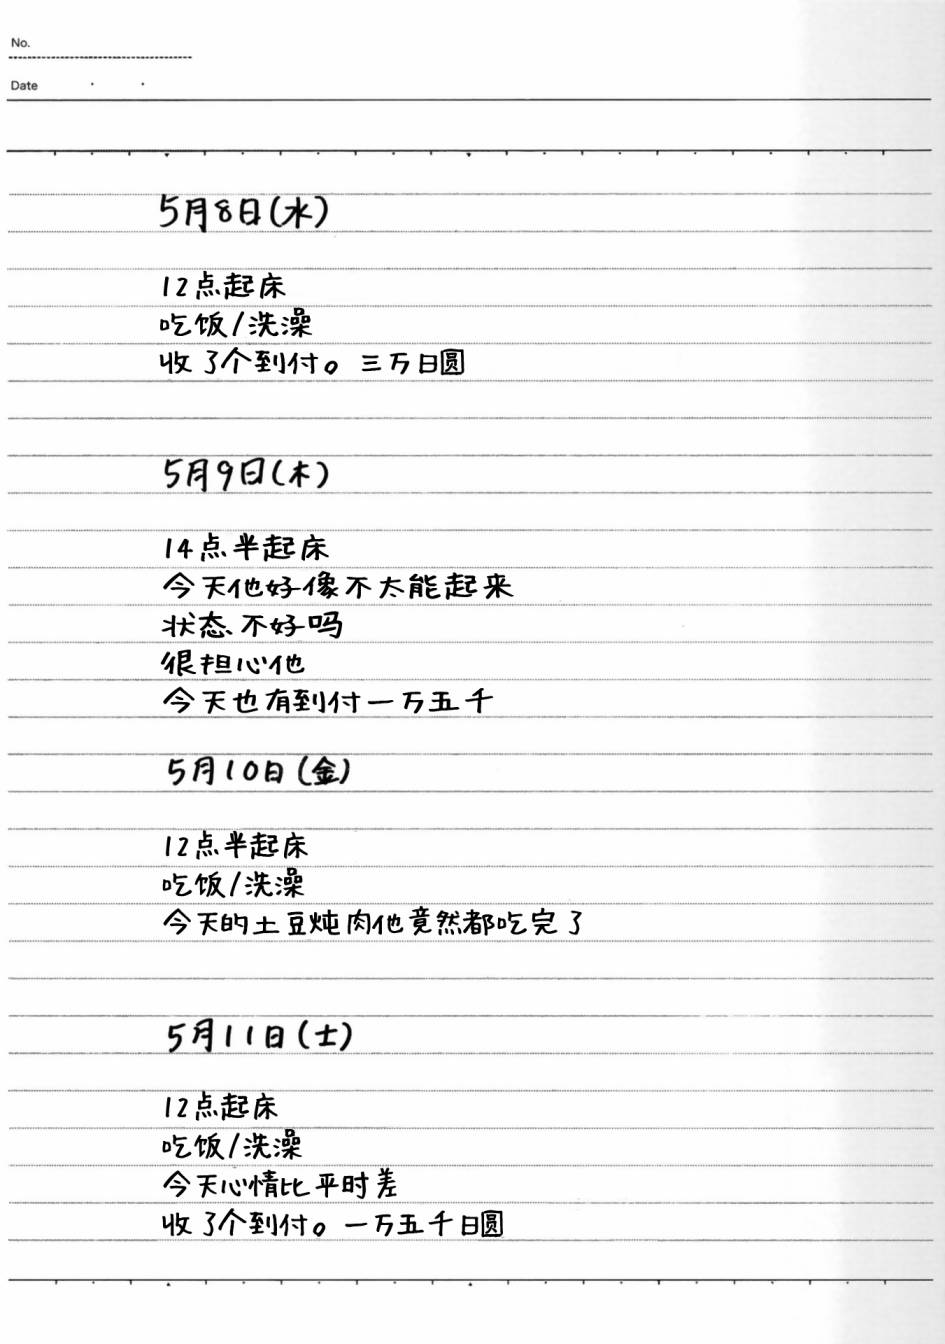 No.
Date
5月8日(水)
12点起床
吃饭/洗澡
收了个到付。三万日圓
5月9日(木)
14点半起床
今天他好像不太能起来
状态不好吗
很担心他
今天也有到付一万五千
5月10日(金)
12点半起床
吃饭/洗澡
今天的土豆炖肉他竟然都吃完了
5月11日(土)
12点起床
吃饭/洗澡
今天心情比平时差
收了个到付。一万五千日圓